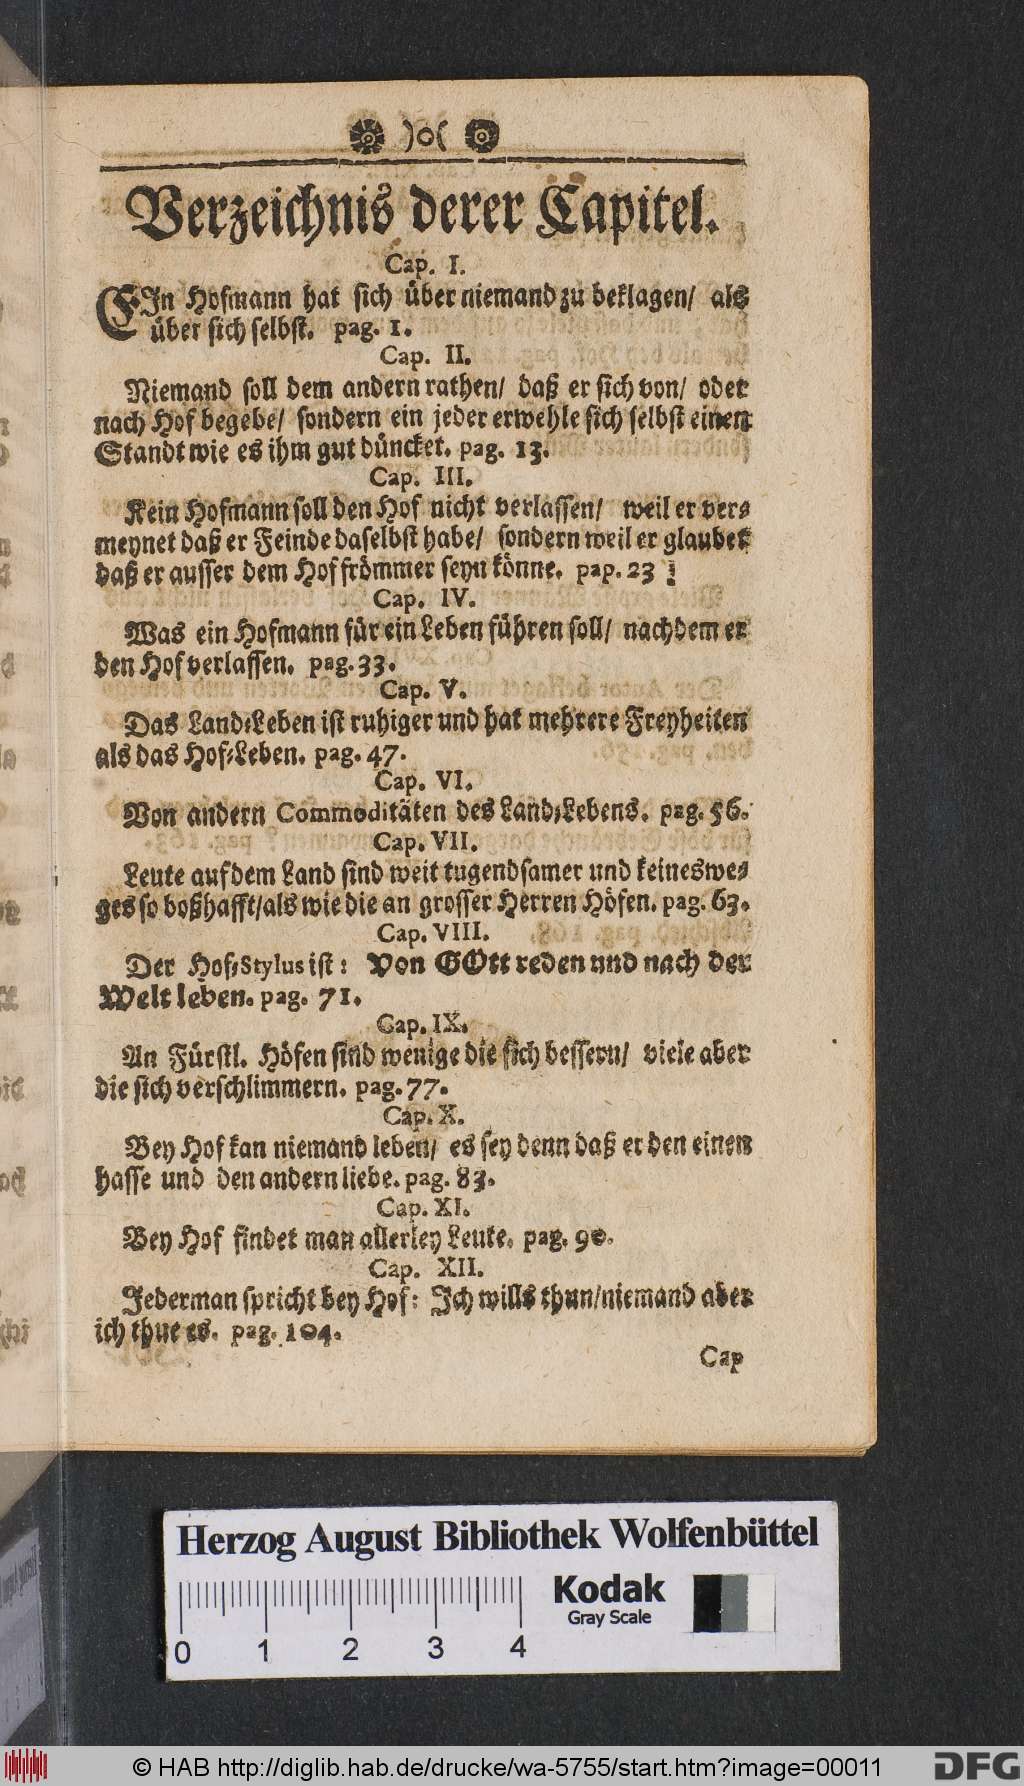 )o(
Verzeichnis derer Capitel.
Cap. I.
EIn Hofmann hat sich über niemand zu beklagen/ als
über sich selbst. pag. 1.
Cap. II.
Niemand soll dem andern rathen/ daß er sich von/ oder
nach Hof begebe/ sondern ein jeder erwehle sich selbst einen
Standt wie es ihm gut düncket. pag. 13.
Cap. III.
Kein Hofmann soll den Hof nicht verlassen/ weil er ver-
meynet daß er Feinde daselbst habe/ sondern weil er glaubet
daß er ausser dem Hof frömmer seyn könne. pap. 23
Cap. IV.
Was ein Hofmann für ein Leben führen soll/ nachdem er
den Hof verlassen. pag. 33.
Cap. V.
Das Land-Leben ist ruhiger und hat mehrere Freyheiten
als das Hof-Leben. pag. 47.
Cap. VI.
Von andern Commoditäten des Land-Lebens. pag. 56.
Cap. VII.
Leute auf dem Land sind weit tugendsamer und keineswe-
ges so boßhafft/als wie die an grosser Herren Höfen. pag. 63.
Cap. VIII.
Der Hof-Stylus ist: Von GOtt reden und nach der
Welt leben. pag. 71.
Cap. IX.
An Fürstl. Höfen sind wenige die sich bessern/ viele aber
die sich verschlimmern. pag. 77.
Cap. X.
Bey Hof kan niemand leben/ es sey denn daß er den einen
hasse und den andern liebe. pag. 83.
Cap. XI.
Bey Hof findet man allerley Leute. pag. 90.
Cap. XII.
Jederman spricht bey Hof: Ich wills thun/niemand aber
ich thue es. pag. 104.
Cap
Herzog August Bibliothek Wolfenbüttel
Kodak
Gray Scale
0 1 2 3 4
© HAB http://diglib.hab.de/drucke/wa-5755/start.htm?image=00011
DFG